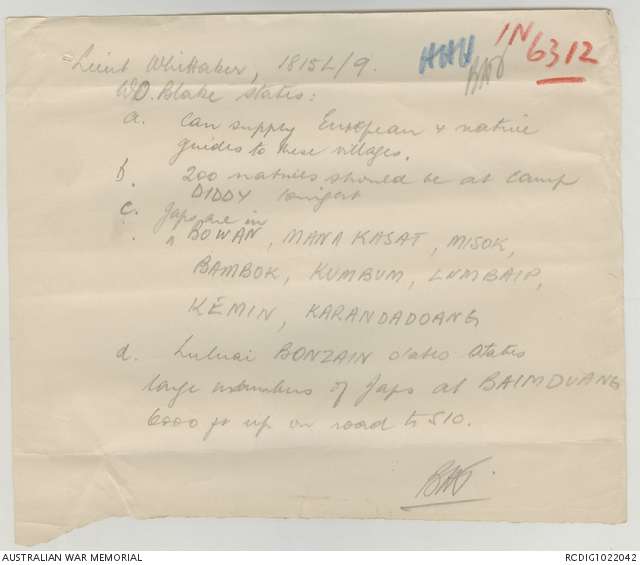 Lieut Whittaker, 1815L/9.
HHH
IN
6312
WO. Blake states:
a. Can supply European & native
guides to these villages.
b. 200 natives should be at Camp
DIDDY tonight
c. Japs are in
BOWAN, MANAKASAT, MISOK,
BAMBOK, KUMBUM, LUMBAIP,
KEMIN, KARANDADOANG
d. Luluai BONZAIN states
large numbers of Japs at BAIMDUANG
6000 ft up on road to SIO.
AUSTRALIAN WAR MEMORIAL
RCDIG1022042